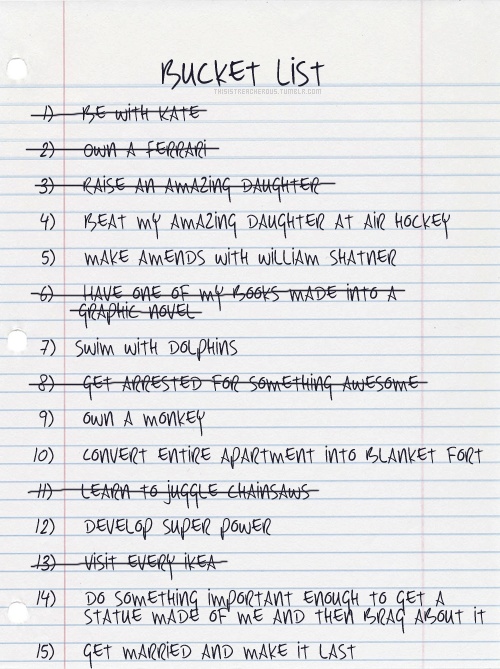 BUCKET LIST
THISISTREACHEROUS.TUMBLR.COM
1) BE WITH KATE
2) OWN A FERRARI
3) RAISE AN AMAZING DAUGHTER
4) BEAT MY AMAZING DAUGHTER AT AIR HOCKEY
5) MAKE AMENDS WITH WILLIAM SHATNER
6) HAVE ONE OF MY BOOKS MADE INTO A
GRAPHIC NOVEL
7) SWIM WITH DOLPHINS
8) GET ARRESTED FOR SOMETHING AWESOME
9) OWN A MONKEY
10) CONVERT ENTIRE APARTMENT INTO BLANKET FORT
11) LEARN TO JUGGLE CHAINSAWS
12) DEVELOP SUPER POWER
13) VISIT EVERY IKEA
14) DO SOMETHING IMPORTANT ENOUGH TO GET A
STATUE MADE OF ME AND THEN BRAG ABOUT IT
15) GET MARRIED AND MAKE IT LAST